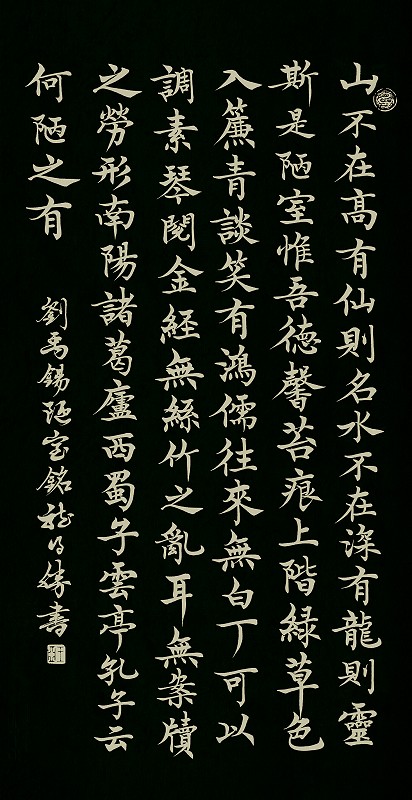 山不在高有仙則名水不在深有龍則靈
斯是陋室惟吾德馨苔痕上階綠草色
入簾青談笑有鴻儒往來無白丁可以
調素琴閱金經無絲竹之亂耳無案牘
之勞形南陽諸葛廬西蜀子雲亭孔子云
何陋之有
劉禹錫陋室銘 書